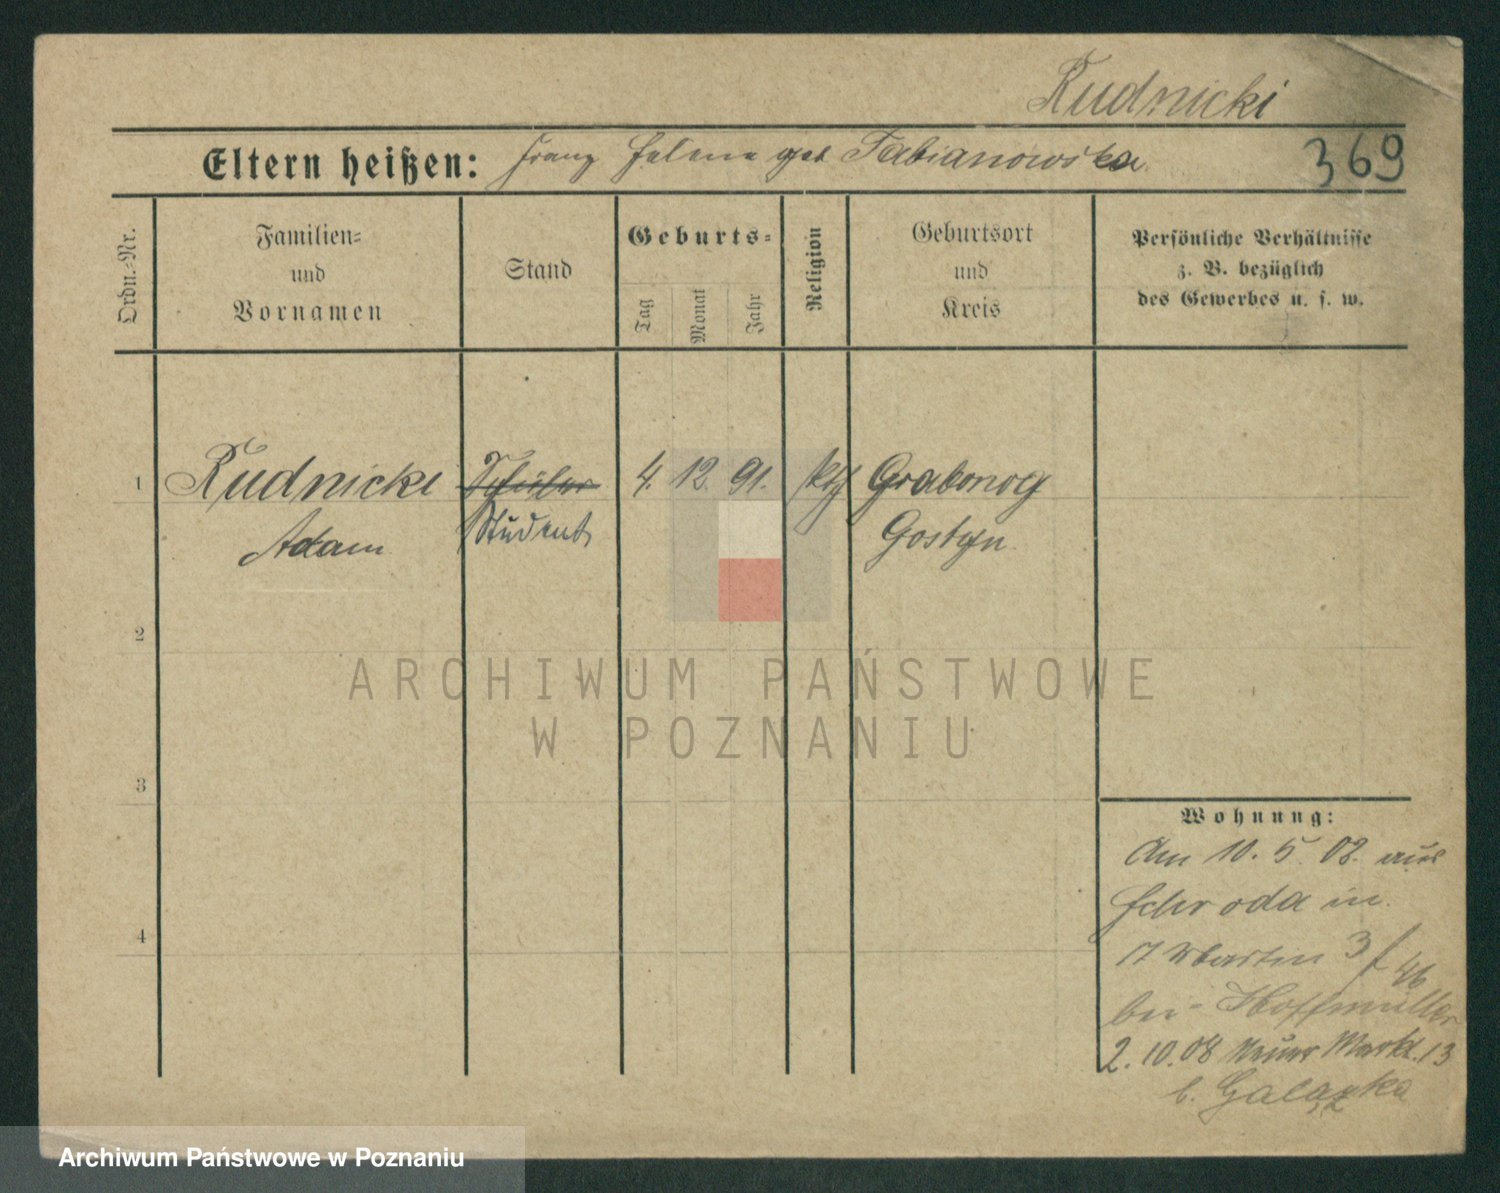 Rudnicki
Eltern heißen: Franz Helene geb Fabianowska.
369
Ordn.-Nr.
Familien-
und
Vornamen
Stand
Geburts-
Tag
Monat
Jahr
Religion
Geburtsort
und
Kreis
Persönliche Verhältnisse
z. B. bezüglich
des Gewerbes u. s. w.
1 Rudnicki Schüler 4. 12. 91. kth Grabonog
Adam Student Gostyn
2
3
4
Wohnung:
Am 10. 5. 08. aus
Schroda in
Martin 3 46
bei Hoffmüller
2. 10. 08 Neuer Markt. 13
b. Gałązka
ARCHIWUM PAŃSTWOWE
W POZNANIU
Archiwum Państwowe w Poznaniu